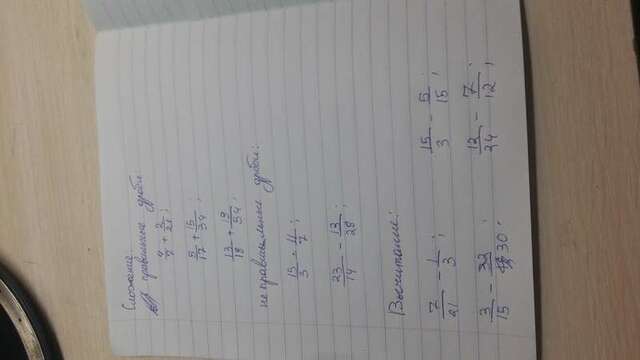 Сложение.
правильные дроби
4/7 + 2/21;
5/17 + 15/34;
13/18 + 19/54;
неправильные дроби:
15/3 - 11/7;
23/14 - 13/28;
Вычитание:
7/21 - 1/3; 15/3 - 5/15;
3/15 - /30; 12/24 - 7/12;